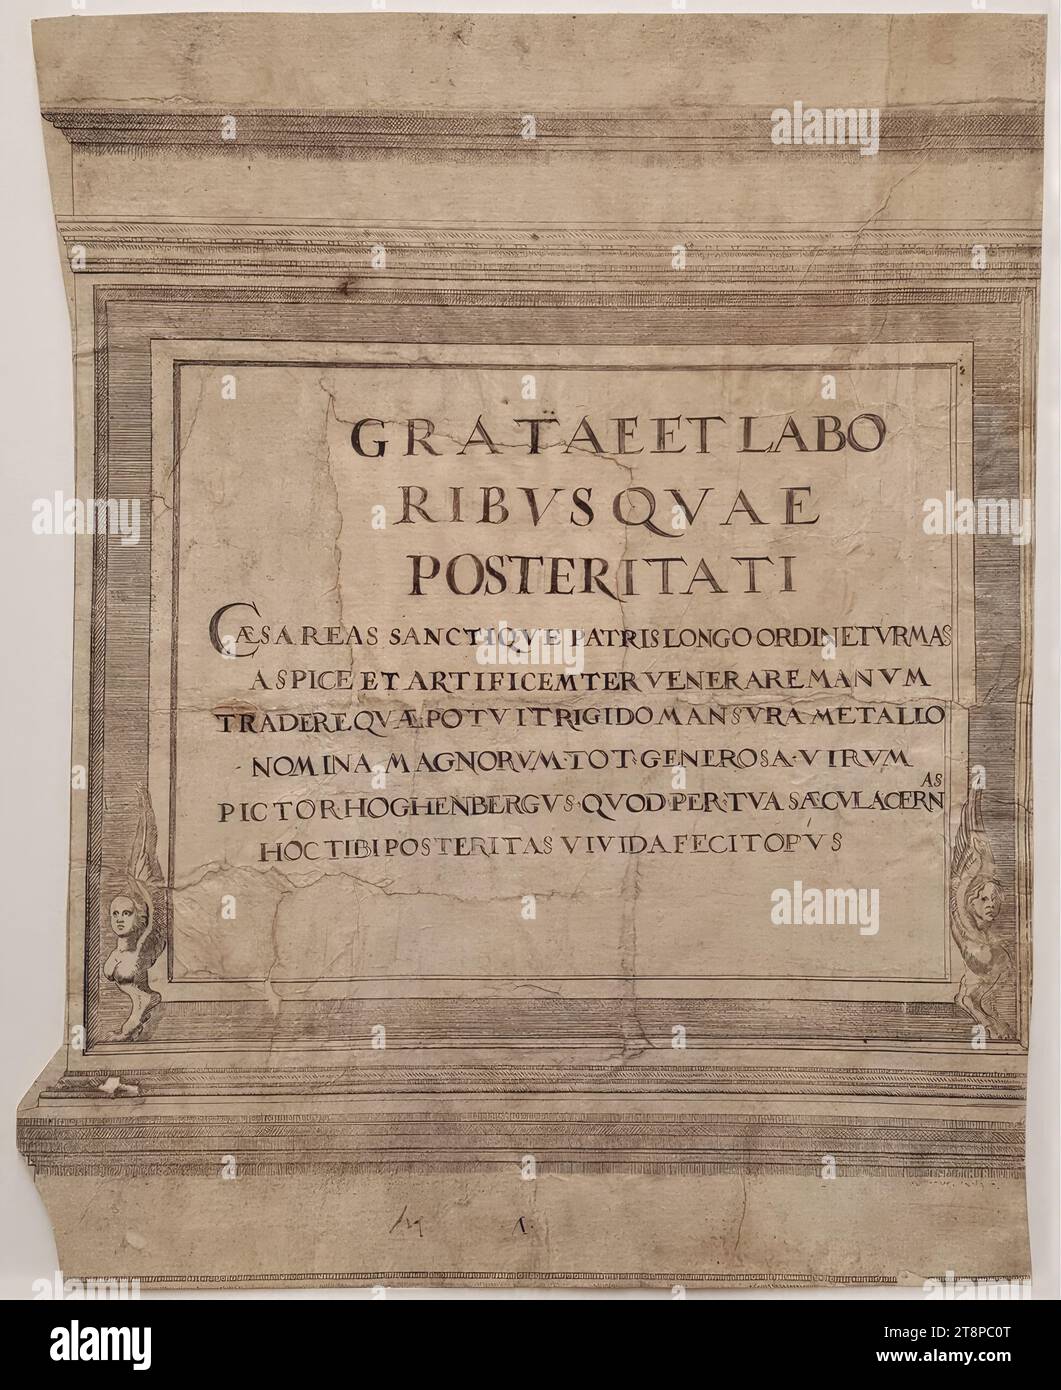 GRATAE ET LABO
RIBVSQVAE
POSTERITATI
CÆSAREAS SANCTIQVE PATRIS LONGO ORDINE TVRMAS
ASPICE ET ARTIFICEM TER VENERARE MANVM
TRADERE QVÆ POTVIT RIGIDO MANSVRA METALLO
NOMINA MAGNORVM·TOT·GENEROSA·VIRVM
PICTOR HOGHENBERGVS·QVOD·PER·TVA SÆCVLA CERN
AS
HOC TIBI POSTERITAS VIVIDA FECIT OPVS
1.
alamy
Image ID: 2T8PC0T
www.alamy.com